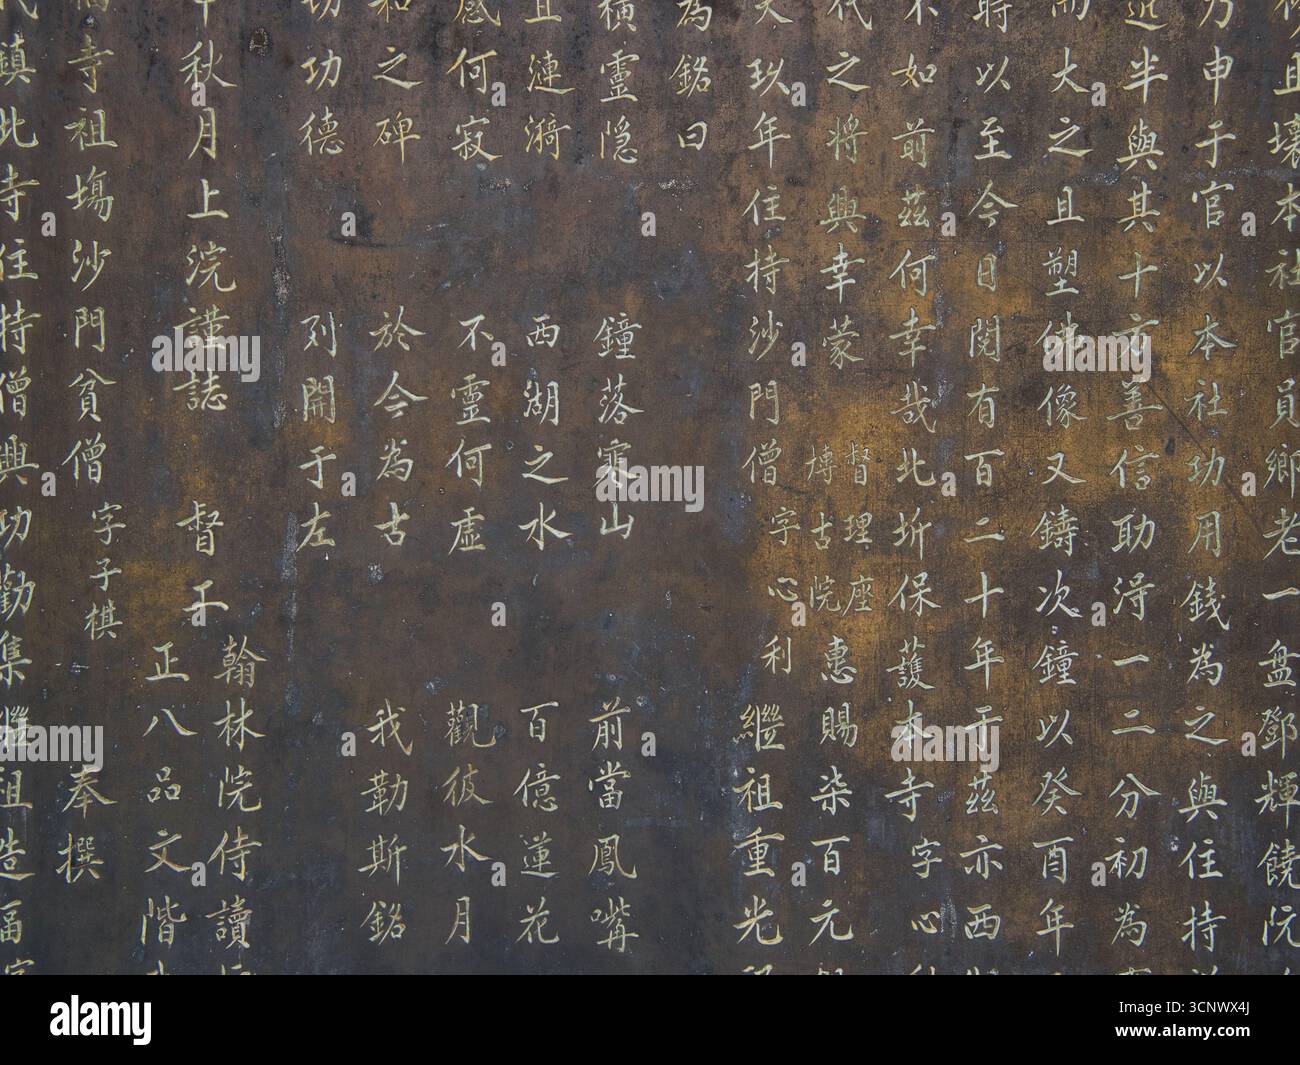 且壞本社官員鄉老一盤鄧輝饒沅
乃申于官以本社功用錢為之與住持
近半與其十方善信助淂一二分初為
而大之且塑佛像又鑄次鐘以癸酉年
時以至今日閱有百二十年于茲亦西
不如前茲何幸哉此圻保護本寺字心
代之將興幸蒙督理座博古院惠賜柒百元
玖年住持沙門僧字心利繼祖重光
為銘曰
橫靈隐 鐘落寒山 前當鳳嘴
且漣漪 西湖之水 百億蓮花
感何寂 不靈何虛 觀彼水月
和之碑 於今為古 我勒斯銘
功功德 列開于左
秋月上浣謹誌 督工 翰林院侍讀
正八品文階
寺祖塲沙門貧僧字子棋 奉撰
鎮此寺住持僧興功勸集繼祖造福
alamy
Image ID: 3CNWX4J
www.alamy.com